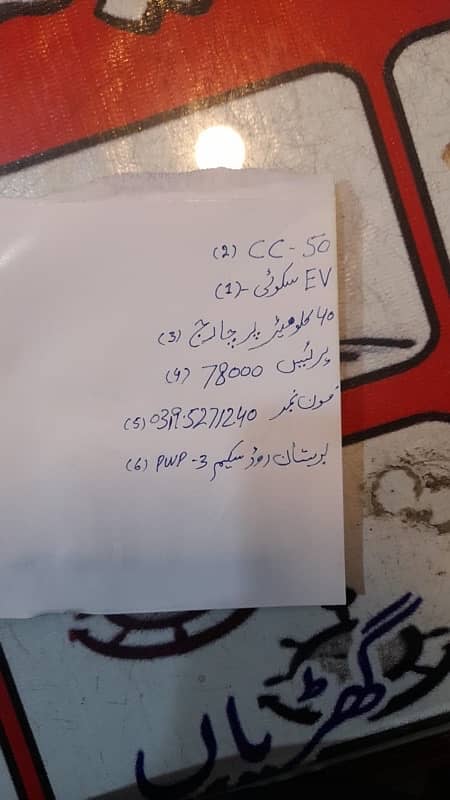 CC - 50 (2)
EV سکوٹی - (1)
40 کلومیٹر پر چارج (3)
پرائیس 78000 (4)
فون نمبر 03195271240 (5)
روڈ سکیم 3 - PWP (6)
گھڑیاں